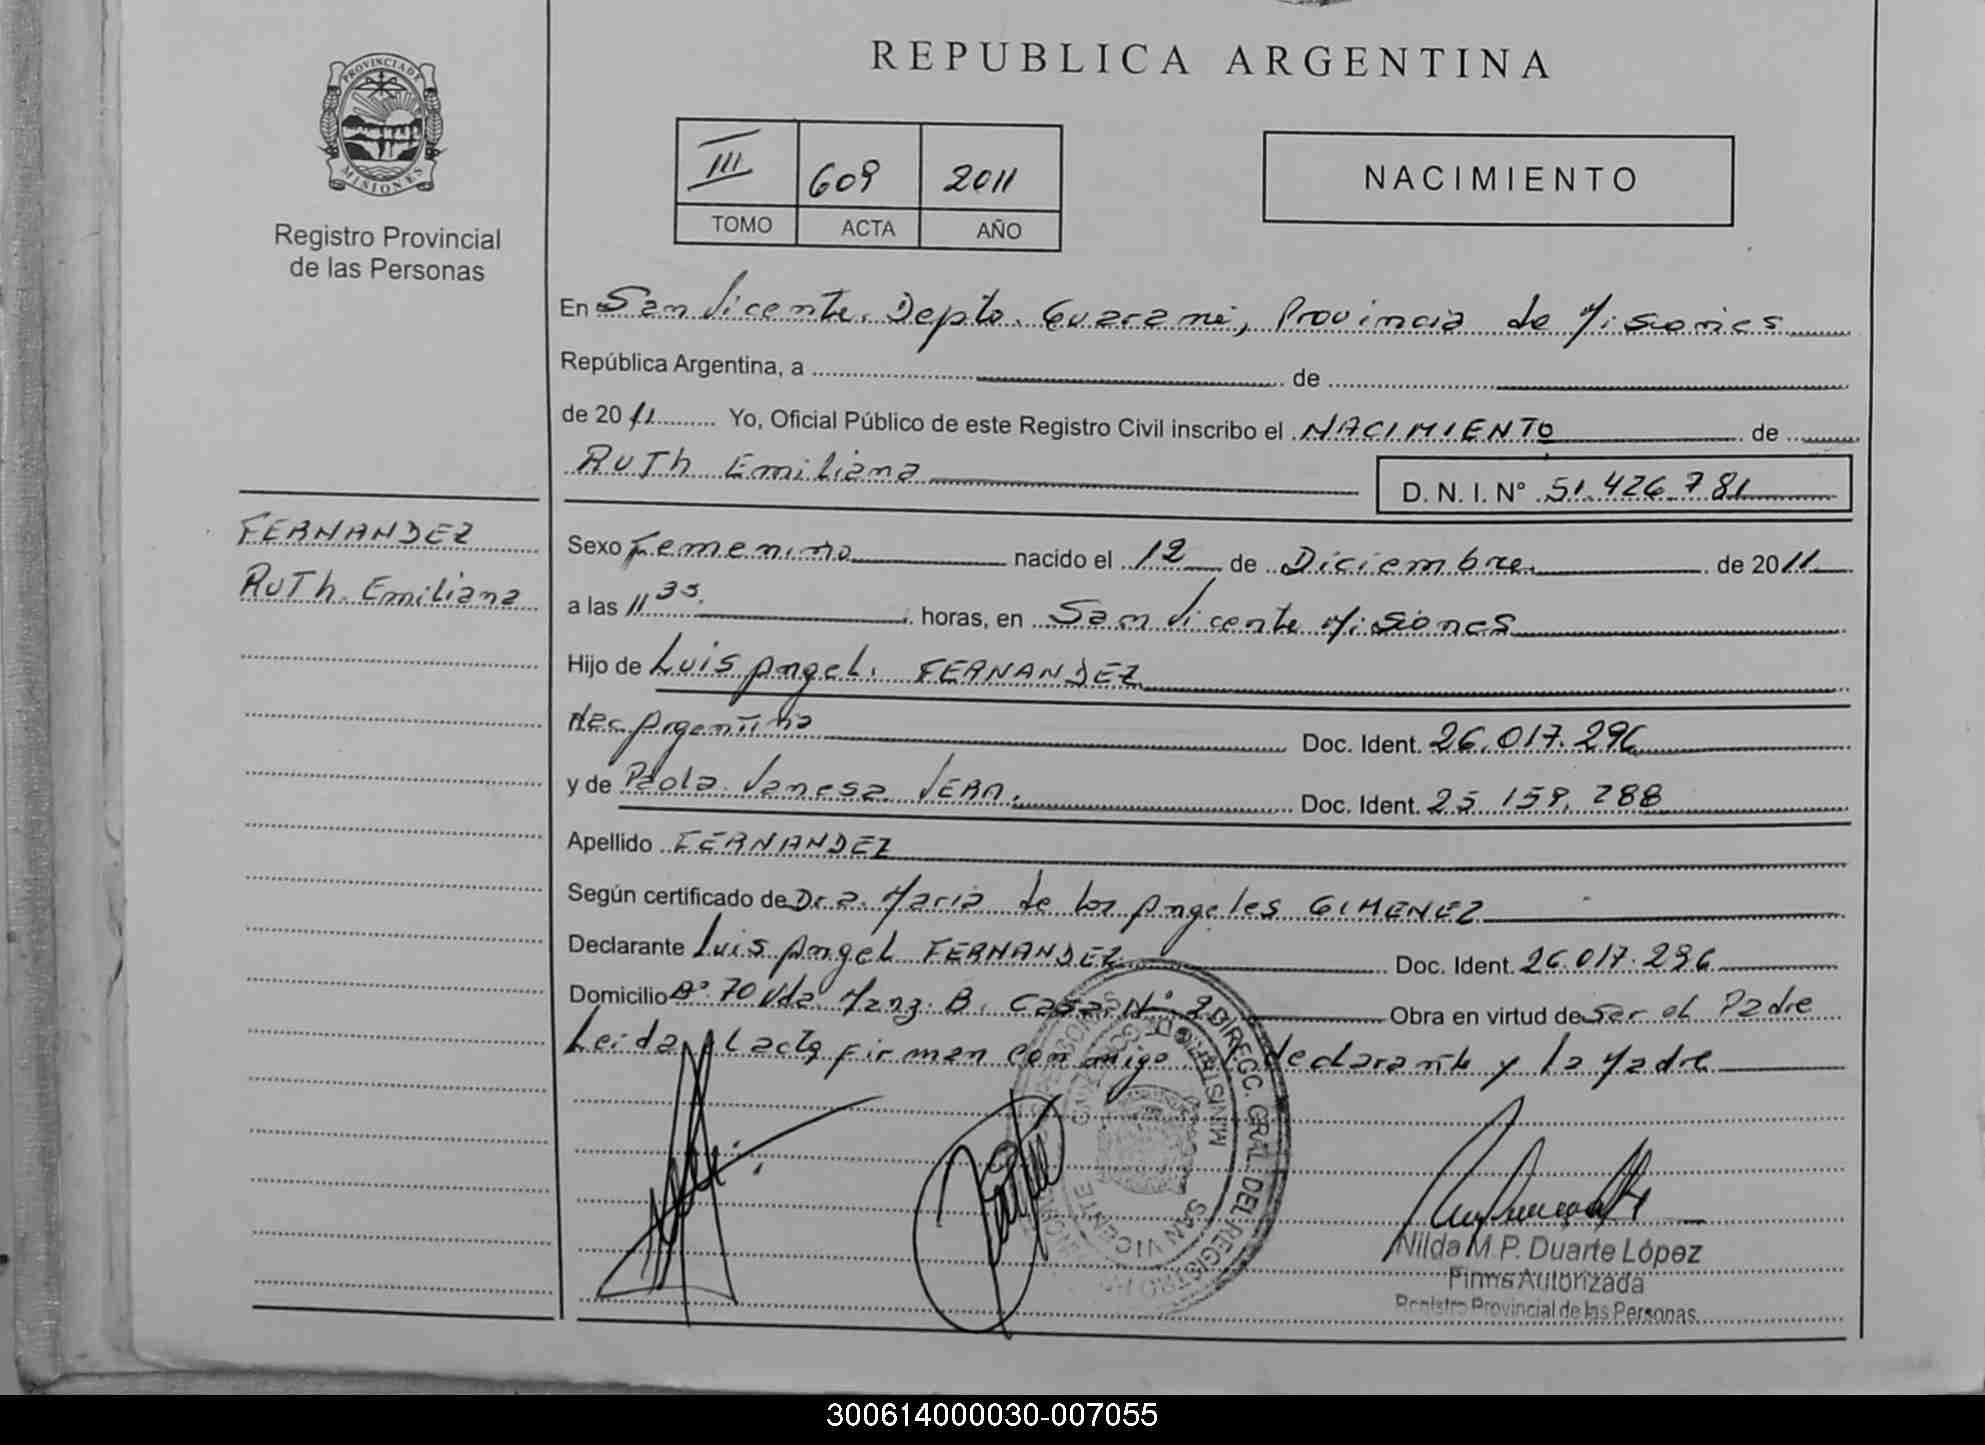 PROVINCIA DE
MISIONES
Registro Provincial
de las Personas
REPUBLICA ARGENTINA
III 609 2011
TOMO ACTA AÑO
NACIMIENTO
En San Vicente. Depto. Guarani, Provincia de Misiones
República Argentina, a de
de 2011 Yo, Oficial Público de este Registro Civil inscribo el NACIMIENTO de
RUTh Emiliana
D. N. I. N° 51.426.781
FERNANDEZ
RuTh Emiliana
Sexo Femenino nacido el 12 de Diciembre. de 2011
a las 11 35. horas, en San Vicente Misiones
Hijo de Luis Angel. FERNANDEZ
Nac Argentina Doc. Ident. 26.017.296
y de Paola Vanesa VERA. Doc. Ident. 25 159.288
Apellido FERNANDEZ
Según certificado de Dra. Maria de los Angeles GIMENEZ
Declarante Luis Angel FERNANDEZ Doc. Ident. 26.017.296
Domicilio B° 70 Vda. Manz. B. Casa N° 2 Obra en virtud de Ser el Padre
Leida el acta firman conmigo declarante y la Madre
DIRECC. GRAL. DEL REGISTRO
SAN VICENTE
Nilda M.P. Duarte López
Firma Autorizada
Registro Provincial de las Personas
300614000030-007055